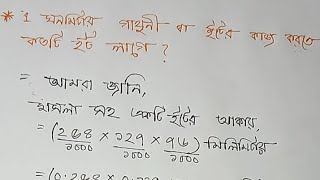 * ১ ঘনমিটার গাথুনী বা ইটের কাজ করতে
কতটি ইট লাগে?
= আমরা জানি,
মসলা সহ একটি ইটের আকার,
= (২৫৪/১০০০ × ১২৭/১০০০ × ৭৬/১০০০) মিলিমিটার